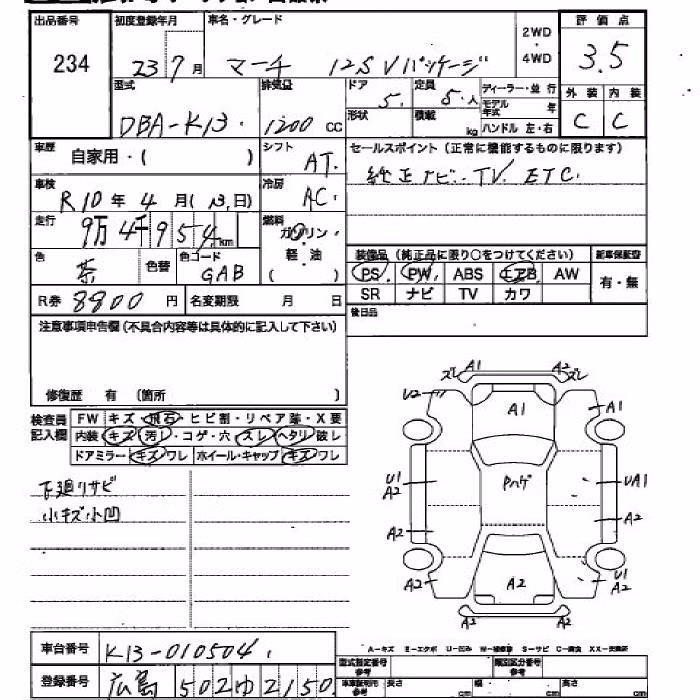 出品番号 234
初度登録年月 23 7月
車名・グレード マーチ 12S Vパッケージ
2WD・4WD
評価点 3.5
外装 C 内装 C
型式 DBA-K13
排気量 1200 cc
ドア 5
形状
定員 5人
積載 kg
ディーラー・並行
モデル年式 年
ハンドル 左・右
車歴 自家用・( )
シフト AT
セールスポイント (正常に機能するものに限ります)
純正ナビ TV ETC
車検 R10年 4月(13日)
冷房 AC
走行 9万4千954km
燃料 ガソリン・軽・油 ( )
色 茶 色替 色コード GAB
装備品 (純正品に限り○をつけてください)
新車保証書 有・無
PS PW ABS エアB AW
SR ナビ TV カワ
R券 8800円 名変期限 月 日
後日品
注意事項申告欄 (不具合内容等は具体的に記入して下さい)
修復歴 有 (箇所 )
検査員記入欄
FW キズ・飛石・ヒビ割・リペア跡・X要
内装 キズ 汚レ・コゲ・穴 スレ ヘタリ 破レ
ドアミラー キズ ワレ ホイール・キャップ キズ・ワレ
下廻リサビ
小キズ小凹
ズレ A1 A2 ズレ
U2 A1 A1
U1 A2 Pハゲ UA1
A2 A2
A2 A2 U1 A2
A2 A2
A-キズ E-エクボ U-凹み W-補修跡 S-サビ C-腐食 XX-交換済
車台番号 K13-010504
登録番号 広島 502 ゆ 2150
型式指定番号参考 類別区分番号参考
車庫証明用参考 長さ cm 幅 cm 高さ cm